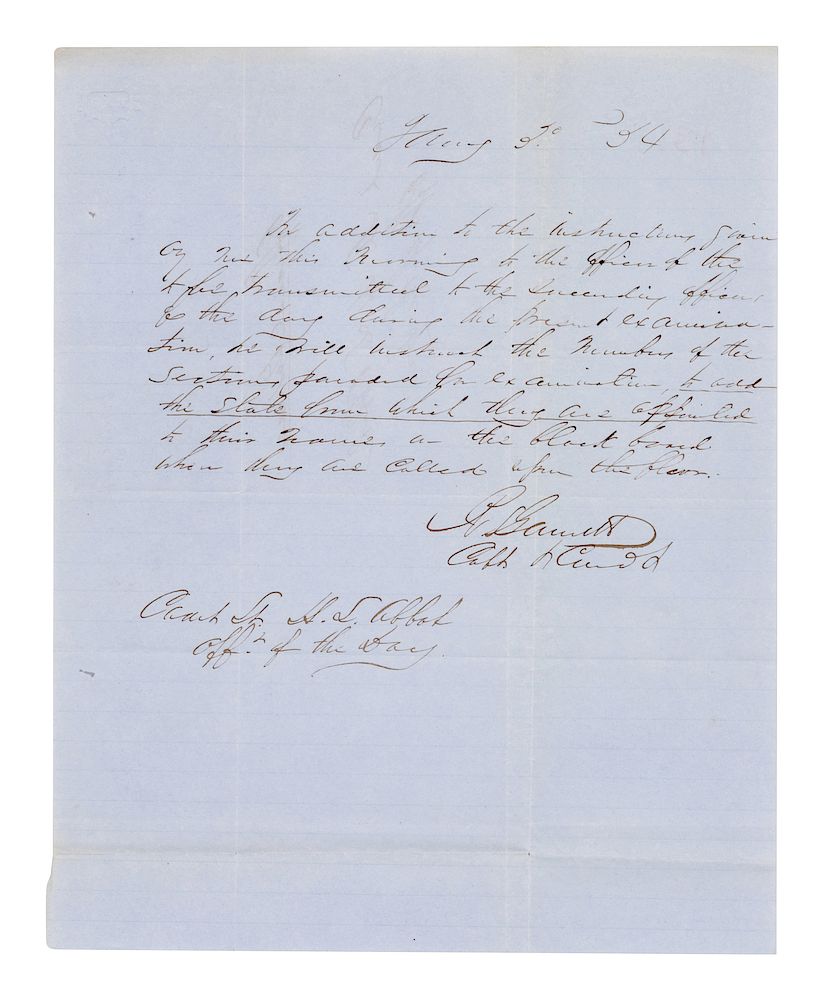 Jany 3d 54
In addition to the instructions given
by me this morning to the officer of the
to be transmitted to the succeeding officers
of the day during the present examina-
tion, he will instruct the members of the
Sections paraded for examination, to add
the State from which they are appointed
to their names on the black board
when they are called upon the floor.
R S Garnett
Capt & Comdt
Cadet Lt. H. L. Abbot
Offr of the Day.